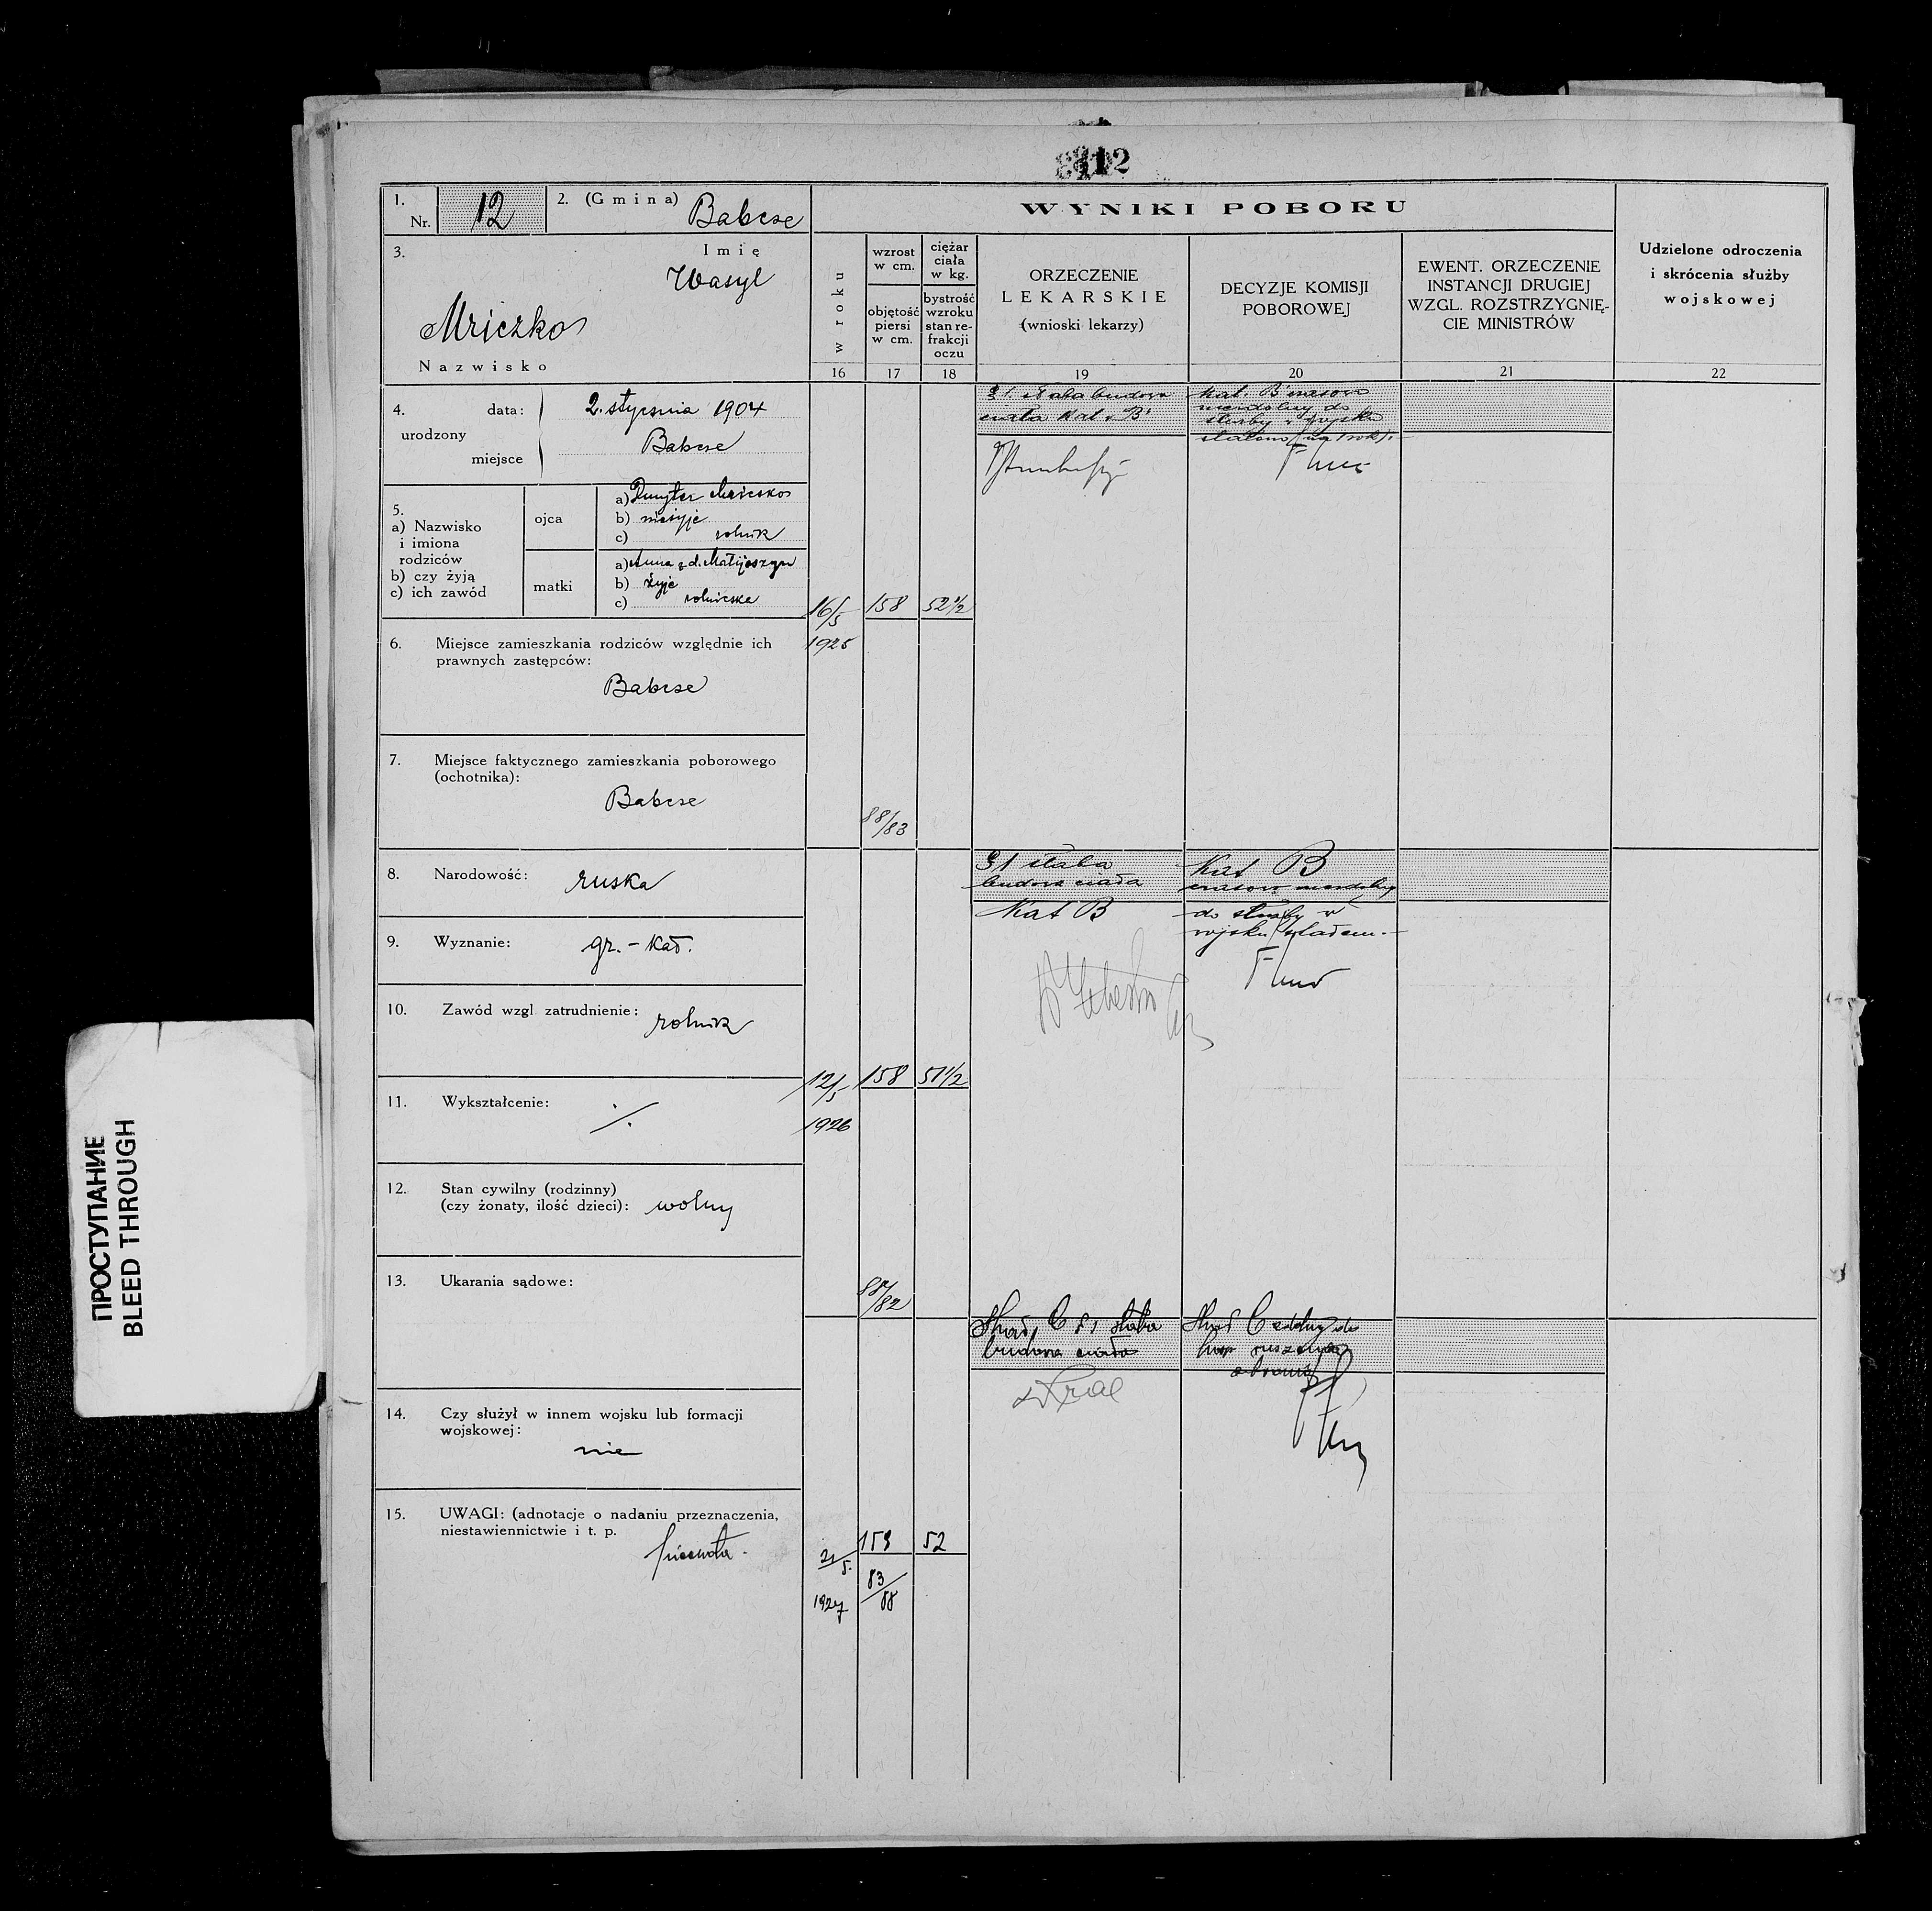 12
1.
Nr. 12
2. (Gmina) Babcze
WYNIKI POBORU
Udzielone odroczenia
i skrócenia służby
wojskowej
3.
Imię
Wasyl
Mriczko
Nazwisko
w roku
wzrost
w cm.
objętość
piersi
w cm.
ciężar
ciała
w kg.
bystrość
wzroku
stan re-
frakcji
oczu
ORZECZENIE
LEKARSKIE
(wnioski lekarzy)
DECYZJE KOMISJI
POBOROWEJ
EWENT. ORZECZENIE
INSTANCJI DRUGIEJ
WZGL. ROZSTRZYGNIĘ-
CIE MINISTRÓW
16 17 18 19 20 21 22
4.
urodzony
data: 2. stycznia 1904
miejsce Babcze
5.
a) Nazwisko
i imiona
rodziców
b) czy żyją
c) ich zawód
ojca
a) Dmyter Mriczko
b) nieżyje
c) rolnik
matki
a) Anna z d. Matijeszyn
b) żyje
c) rolniczka
6. Miejsce zamieszkania rodziców względnie ich
prawnych zastępców:
Babcze
7. Miejsce faktycznego zamieszkania poborowego
(ochotnika):
Babcze
8. Narodowość: ruska
9. Wyznanie: gr.-kat.
10. Zawód wzgl. zatrudnienie: rolnik
11. Wykształcenie: ·/.
12. Stan cywilny (rodzinny)
(czy żonaty, ilość dzieci): wolny
13. Ukarania sądowe:
14. Czy służył w innem wojsku lub formacji
wojskowej:
nie
15. UWAGI: (adnotacje o nadaniu przeznaczenia,
niestawiennictwie i t. p.
piechota.
16/5
1925
158
52 1/2
88/83
§1. słaba budowa
ciała Kat. "B"
Kat. "B" czasowo
niezdolny do
służby w wojsku
stałem (na 1 rok).
12/5
1926
158
51 1/2
/82
§1 słaba
budowa ciała
Kat B
Kat B
czasowo niezdolny
do służby w
wojsku stałem.
21/5.
1927
52
83/88
C §1 słaba
budowa ciała
C zdolny do
ruszenia
ПРОСТУПАНИЕ
BLEED THROUGH